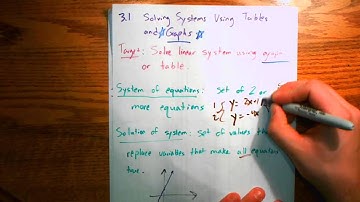 3.1 Solving Systems Using Tables
and ☆Graphs☆
Target: Solve linear system using graph
or table.
System of equations: Set of 2 or
more equations 1 { y = 2x+1
2 { y = -4x
Solution of system: Set of values
replace variables that make all equations
true.